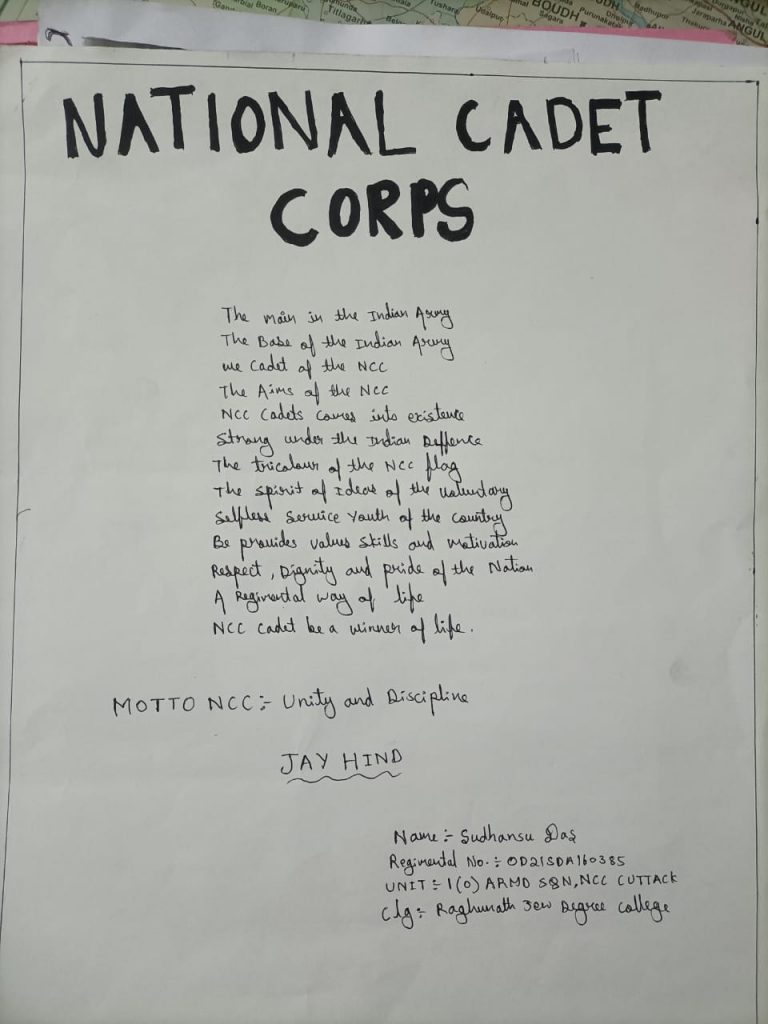 Titlagarh
Tushara
Udaipur
BOUDH
Purunakatak
ANGUL
NATIONAL CADET
CORPS
The main in the Indian Army
The Base of the Indian Army
we Cadet of the NCC
The Aims of the NCC
NCC Cadets comes into existence
Strong under the Indian Deffence
The tricolour of the NCC flag
The spirit of Ideas of the voluntary
Selfless Service Youth of the country
Be provides values skills and motivation
Respect, Dignity and pride of the Nation
A Regimental way of life
NCC Cadet be a winner of life.
MOTTO NCC :- Unity and Discipline
JAY HIND
Name :- Sudhansu Das
Regimental No. :- OD21SDA160385
UNIT :- 1(O) ARMD SQN, NCC CUTTACK
Clg :- Raghunath Jew Degree College